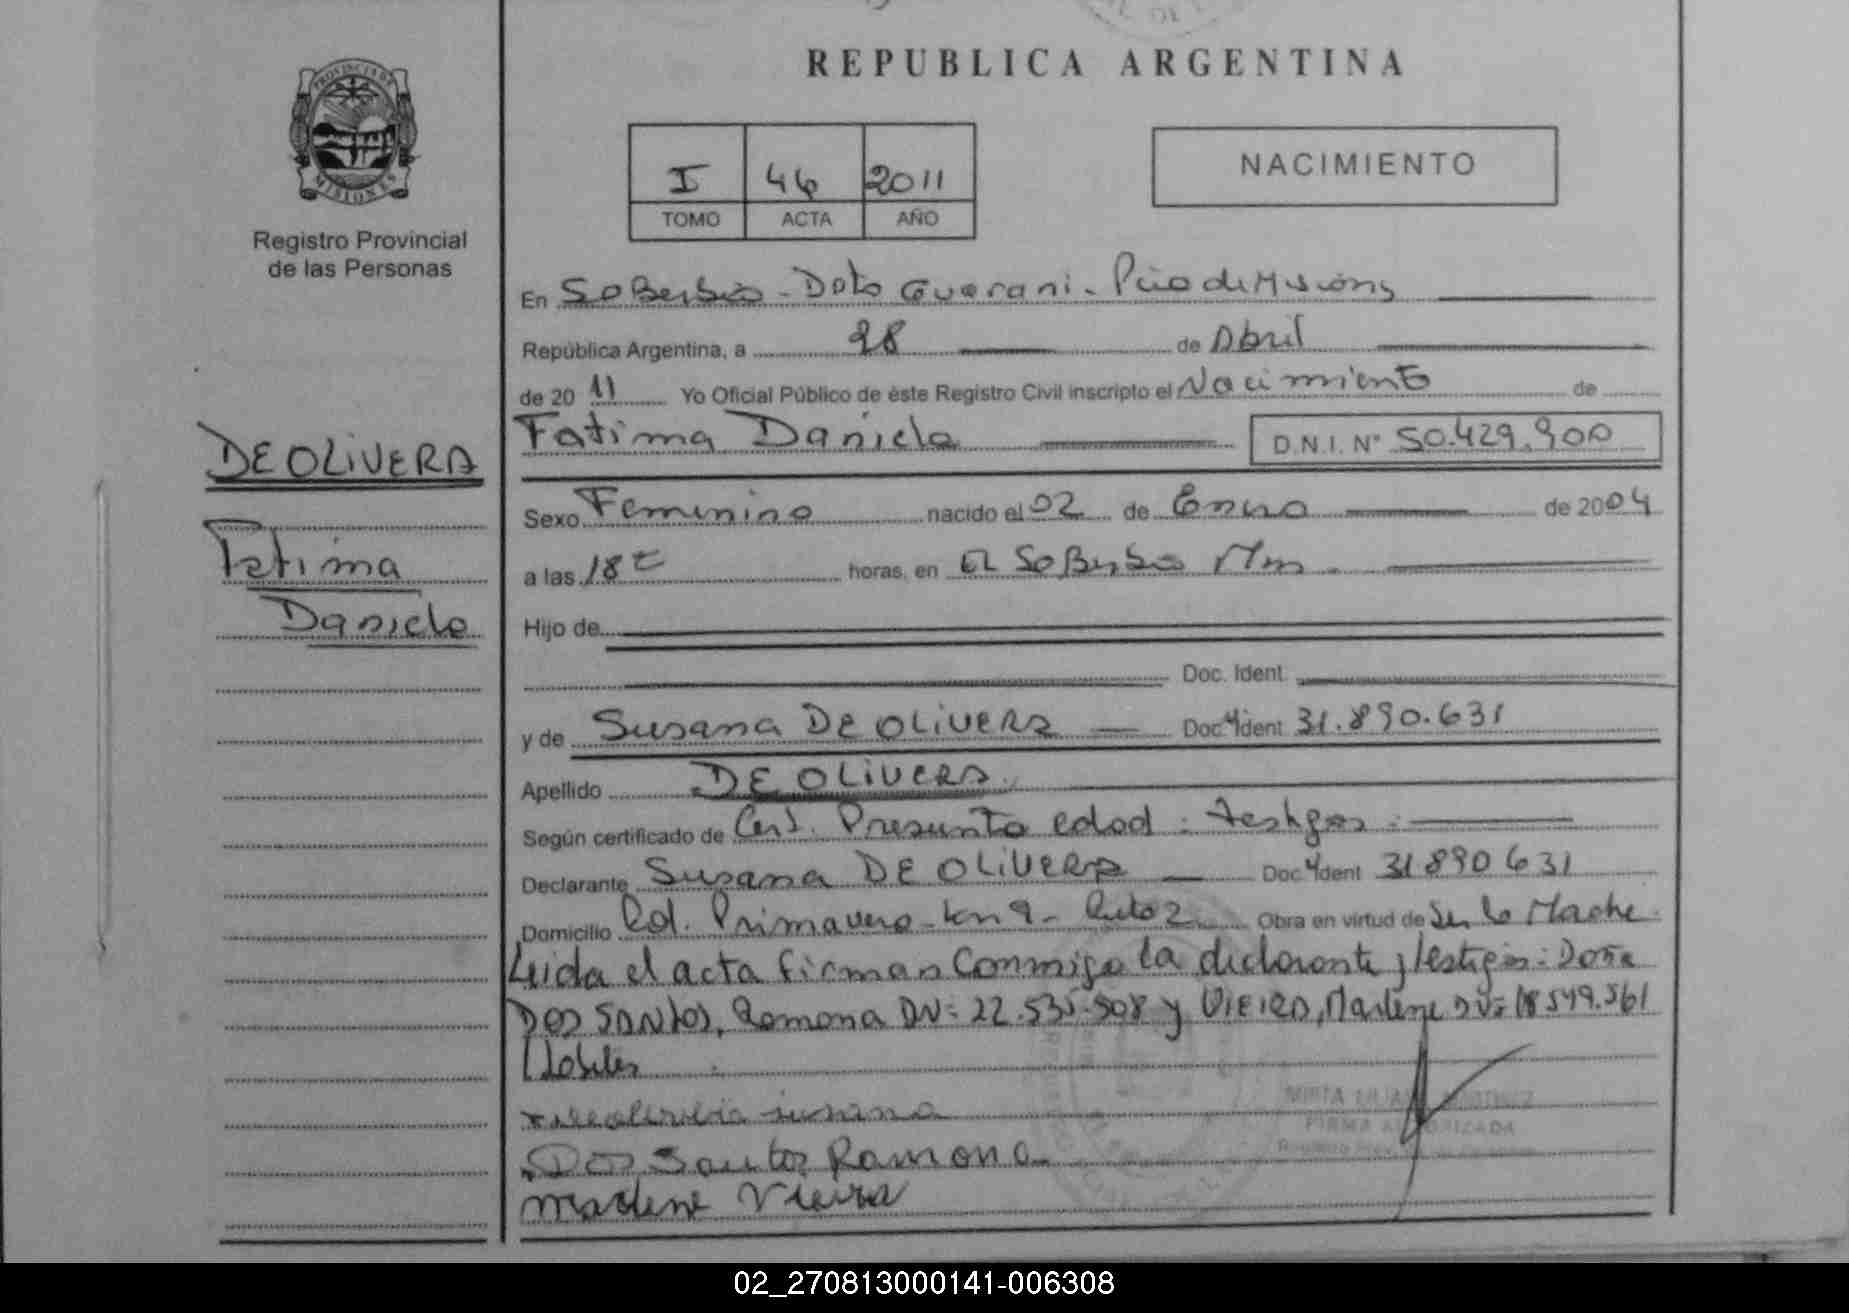 REPUBLICA ARGENTINA
PROVINCIA DE
MISIONES
Registro Provincial
de las Personas
I 46 2011
TOMO ACTA AÑO
NACIMIENTO
En SoBerbio - Dpto Guarani - Pcia de Misiones
República Argentina, a 28 de Abril
de 20 11 Yo Oficial Público de éste Registro Civil inscripto el Nacimiento de
Fatima Daniela D.N.I. N° 50.429.900
DE OLIVERA
Fatima
Daniela
Sexo Femenino nacido el 02 de Enero de 2004
a las 18 horas, en El SoBerbio Mnes
Hijo de
Doc. Ident.
y de Susana DE OLIVERA Doc. Ident. 31.890.631
Apellido DE OLIVERA
Según certificado de Cert. Presunta edad. testigos.
Declarante Susana DE OLIVERA Doc. Ident 31890631
Domicilio Col. Primavera - km 9 - Ruta 2 Obra en virtud de Ser la Madre.
Leida el acta firman Conmigo la declarante y testigos: Doña
DOS SANTOS, Ramona DNI: 22.535.508 y VIEIRA, Marlene DNI: 18549.561
Susana
Dos Santos Ramona
Marlene Vieira
FIRMA AUTORIZADA
02_270813000141-006308